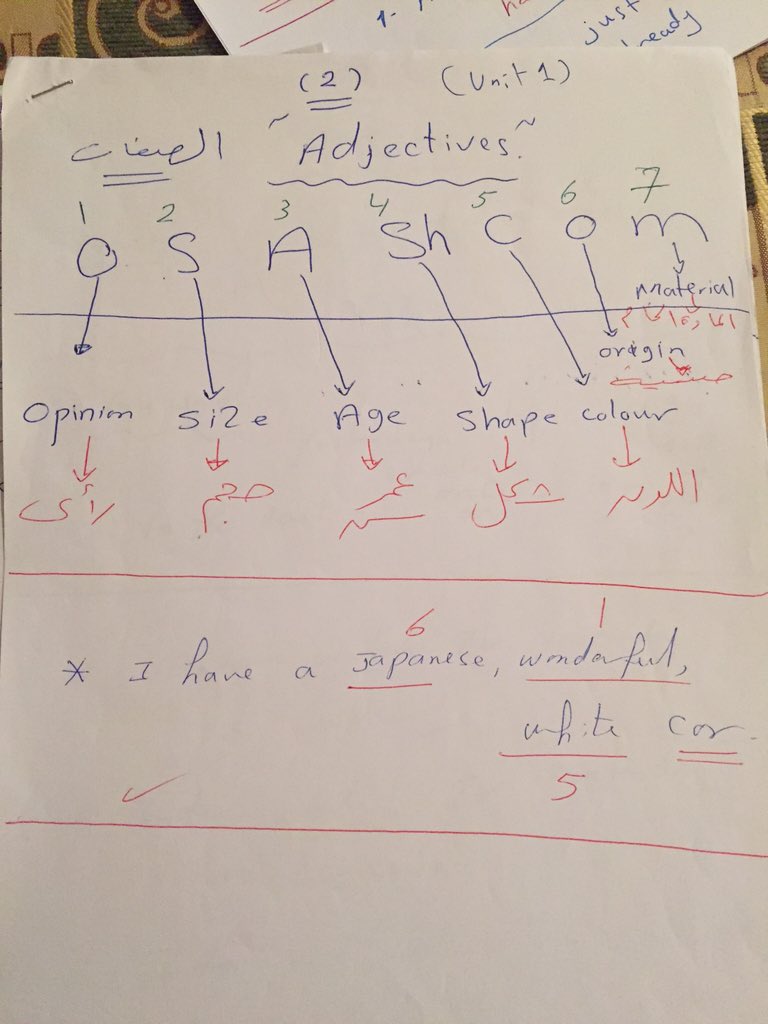 just
ready
(2) (Unit 1)
الصفات ~ Adjectives. ~
1 2 3 4 5 6 7
O S A Sh C O m
material
المادة الخام
origin
جنسية
Opinion size Age shape colour
رأى حجم عمر شكل اللون
سن
6 1
* I have a Japanese, wonderful,
white car.
5